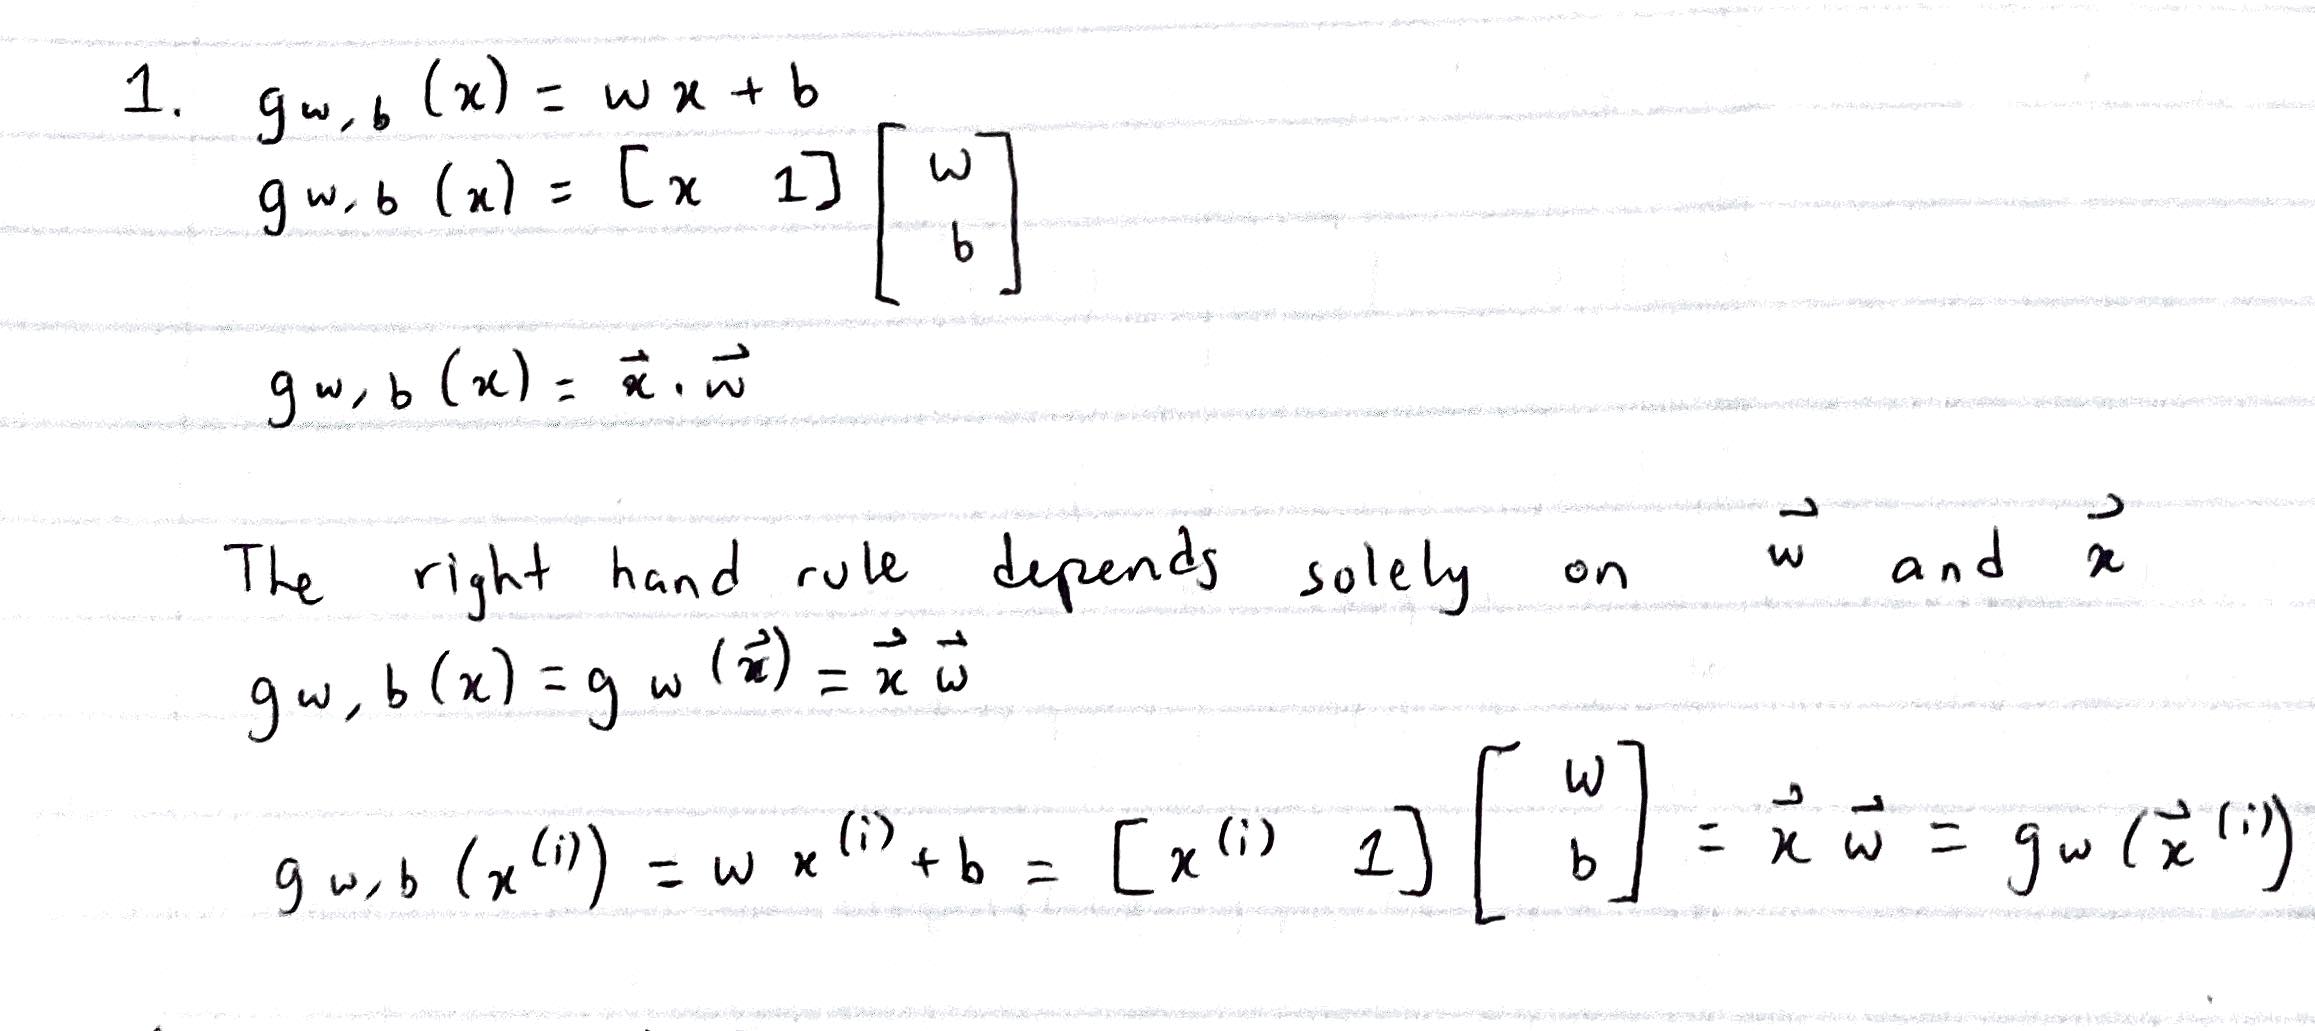 1. g_{w,b} (x) = w x + b
g_{w,b} (x) = [x 1] [w b]
g_{w,b} (x) = \vec{x} . \vec{w}
The right hand rule depends solely on \vec{w} and \vec{x}
g_{w,b} (x) = g_w (\vec{x}) = \vec{x} \vec{w}
g_{w,b} (x^{(i)}) = w x^{(i)} + b = [x^{(i)} 1] [w b] = \vec{x} \vec{w} = g_w (\vec{x}^{(i)})